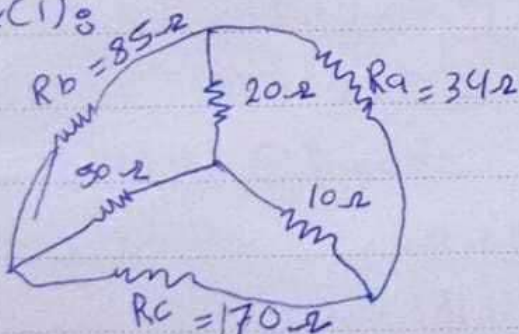 (1):
Rb = 85Ω
20Ω
Ra = 34Ω
50Ω
10Ω
Rc = 170Ω